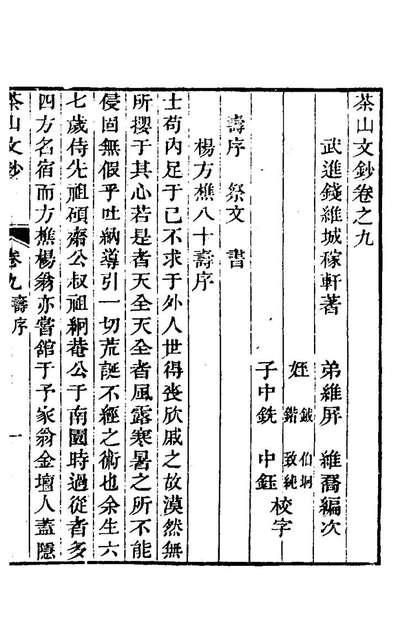 茶山文鈔卷之九
武進錢維城稼軒著　弟維屏　維喬編次
姪
伯坰
致純
子中銑　中鈺　校字
壽序　祭文　書
楊方樵八十壽序
士苟內足于己不求于外人世得喪欣戚之故漠然無
所攖于其心若是者天全天全者風露寒暑之所不能
侵固無假乎吐納導引一切荒誕不經之術也余生六
七歲侍先祖碩齋公叔祖絅菴公于南園時過從者多
四方名宿而方樵楊翁亦嘗舘于予家翁金壇人蓋隱
茶山文鈔　卷九　壽序　一